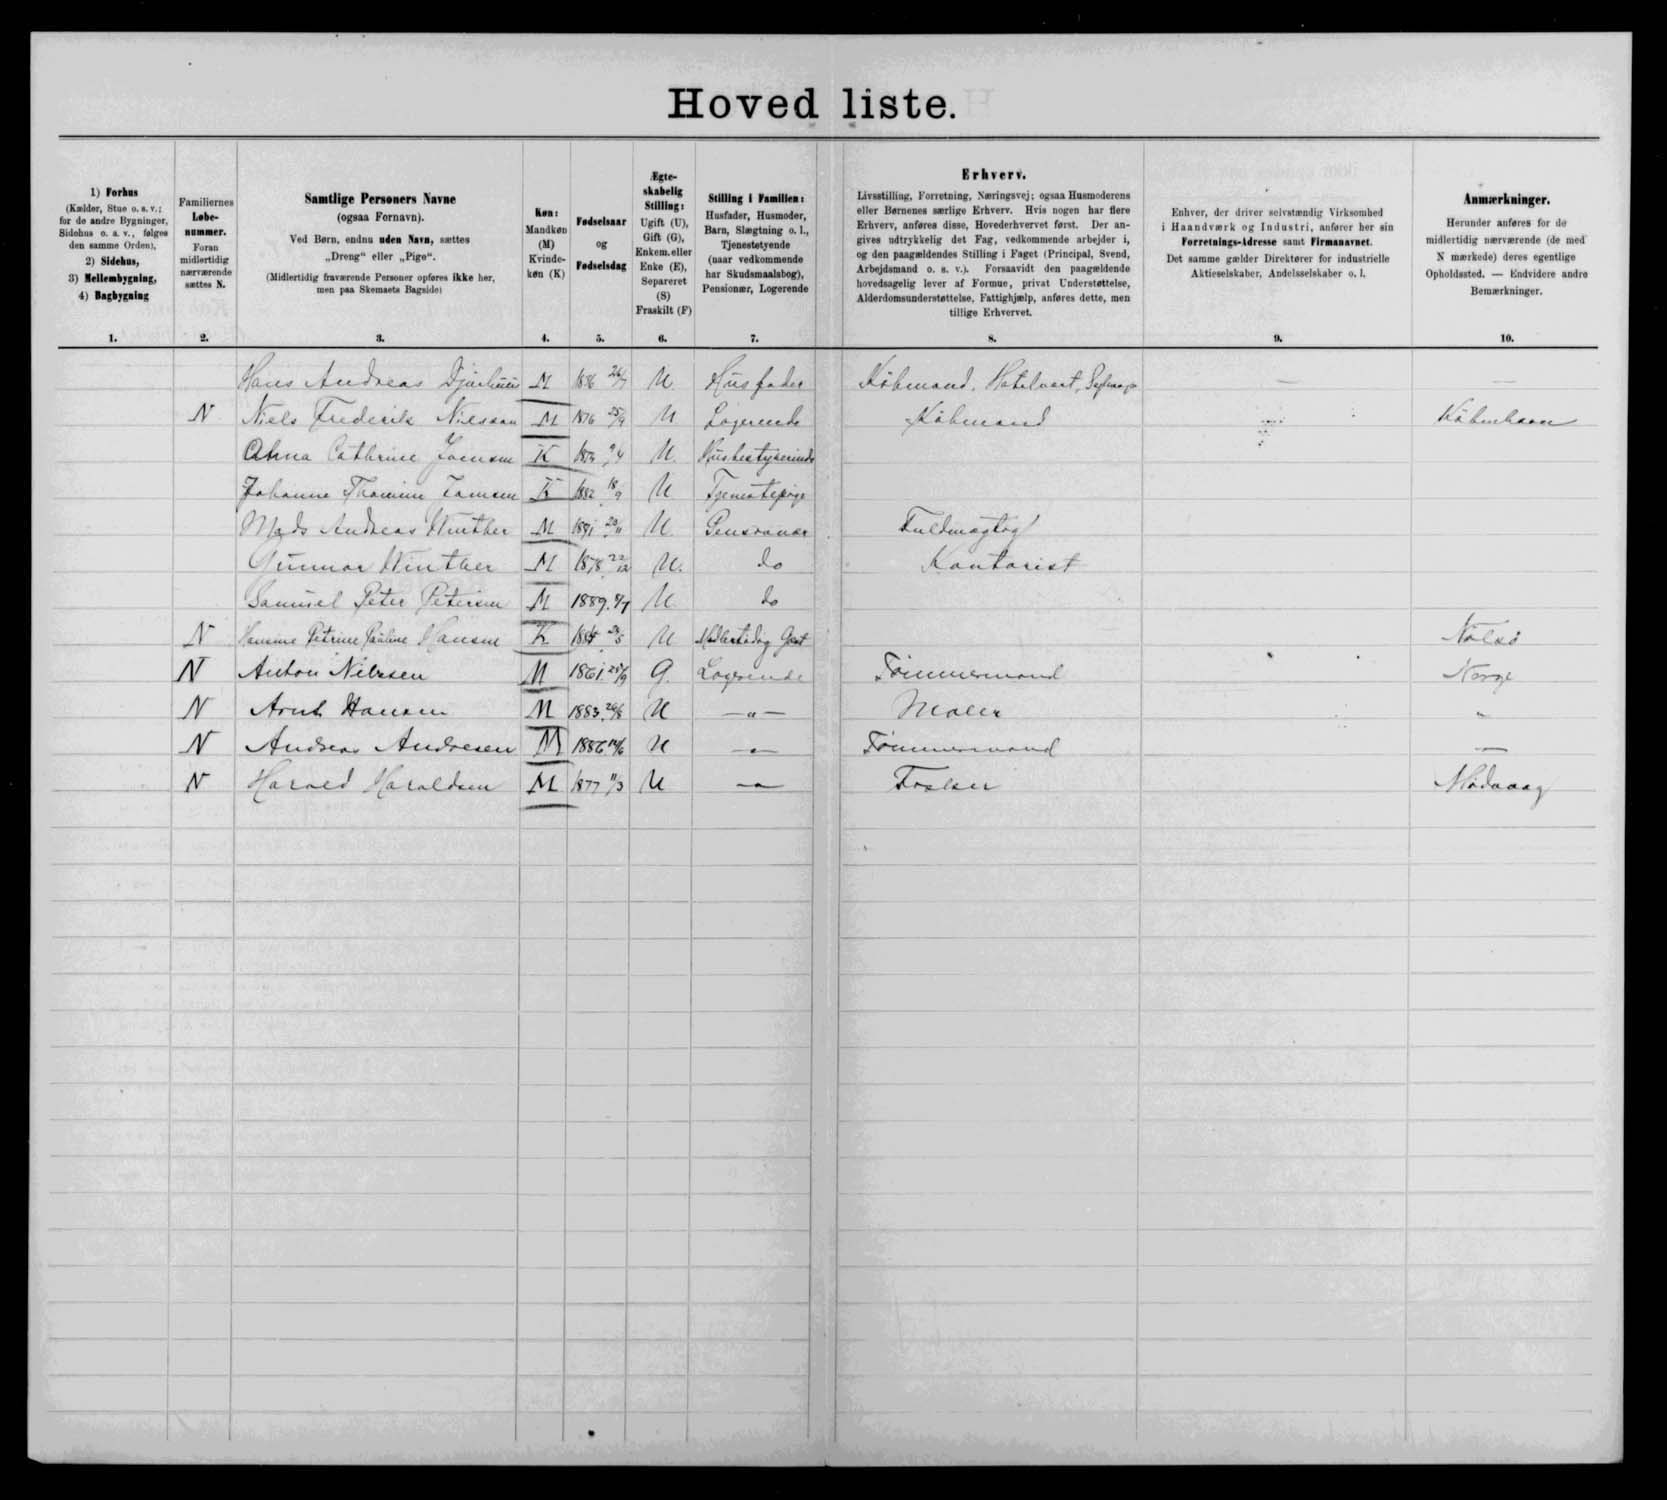 Hovedliste.
1) Forhus
(Kælder, Stue o. s. v.;
for de andre Bygninger,
Sidehus o. s. v., følges
den samme Orden),
2) Sidehus,
3) Mellembygning,
4) Bagbygning
1.
Familiernes
Løbe-
nummer.
Foran
midlertidig
nærværende
sættes N.
2.
Samtlige Personers Navne
(ogsaa Fornavn).
Ved Børn, endnu uden Navn, sættes
„Dreng“ eller „Pige“.
(Midlertidig fraværende Personer opføres ikke her,
men paa Skemaets Bagside)
3.
Køn:
Mandkøn
(M)
Kvinde-
køn (K)
4.
Fødselsaar
og
Fødselsdag
5.
Ægte-
skabelig
Stilling:
Ugift (U),
Gift (G),
Enkem. eller
Enke (E),
Separeret
(S)
Fraskilt (F)
6.
Stilling i Familien:
Husfader, Husmoder,
Barn, Slægtning o. l.,
Tjenestetyende
(naar vedkommende
har Skudsmaalsbog),
Pensionær, Logerende
7.
Erhverv.
Livsstilling, Forretning, Næringsvej; ogsaa Husmoderens
eller Børnenes særlige Erhverv. Hvis nogen har flere
Erhverv, anføres disse, Hovederhvervet først. Der an-
gives udtrykkelig det Fag, vedkommende arbejder i,
og den paagældendes Stilling i Faget (Principal, Svend,
Arbejdsmand o. s. v.). Forsaavidt den paagældende
hovedsagelig lever af Formue, privat Understøttelse,
Alderdomsunderstøttelse, Fattighjælp, anføres dette, men
tillige Erhvervet.
8.
Enhver, der driver selvstændig Virksomhed
i Haandværk og Industri, anfører her sin
Forretnings-Adresse samt Firmanavnet.
Det samme gælder Direktører for industrielle
Aktieselskaber, Andelsselskaber o. l.
9.
Anmærkninger.
Herunder anføres for de
midlertidig nærværende (de med
N mærkede) deres egentlige
Opholdssted. — Endvidere andre
Bemærkninger.
10.
Hans Andreas Djurhuus M 26/7 U Husfader Købmand, Hotelvært — —
N Niels Frederik Nielsen M 1876 25/9 U Logerende Købmand København
Anna Cathrine Joensen K 9/4 U. Husbestyrerinde
Johanne Thomine K 1882 18/9 U Tjenestepige
Mads Andreas Winther M U. Pensionær Fuldmægtig
Gunnar Winther M 1878 22/12 U. do Kontorist
Samuel Peter Petersen M 1889. U do
N Hansine Petrine Pauline Hansen K U Midlertidig Gæst Nolsø
N Anton Nielsen M 1861. 25/9 G. Logerende Tømmermand Norge
N Arnt Hansen M 1883. 26/8 U — „ — Maler „
N Andreas Andresen M 1886. U — „ — Tømmermand —
N Harald Haraldsen M 1877 11/3 U — „ — Fisker